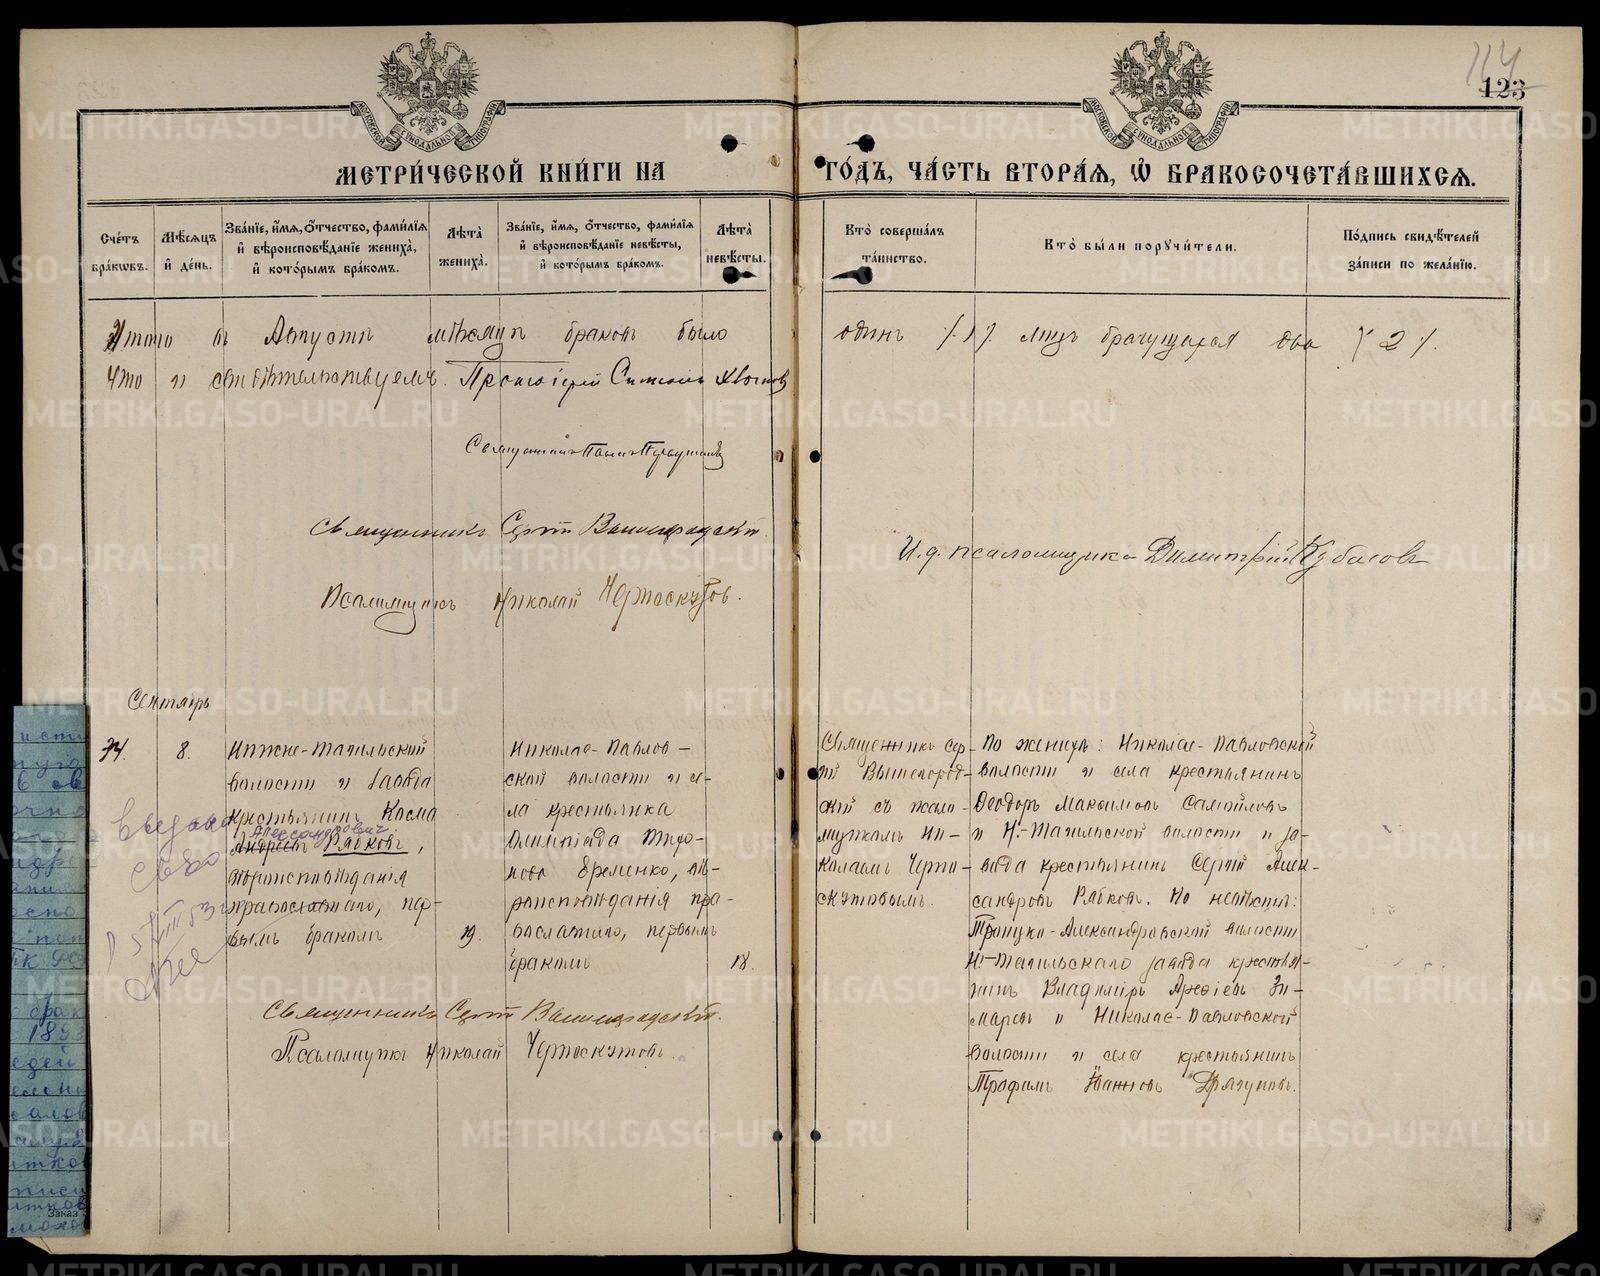 123
МОСКОВСКОЙ СѴНОДАЛЬНОЙ ТИПОГРАФІИ
МОСКОВСКОЙ СѴНОДАЛЬНОЙ ТИПОГРАФІИ
МЕТРИ́ЧЕСКОЙ КНИ́ГИ НА ГО́ДЪ, ЧА́СТЬ ВТОРА́Я, Ѽ БРАКОСОЧЕТА́ВШИХСѦ.
Сче́тъ бра́кѡвъ.
Мѣ́сяцъ и҆ де́нь.
Зва́нїе, и҆́мя, ѻ҆́тчество, фами́лїя и҆ вѣроисповѣ́данїе жениха̀, и҆ кото́рымъ бра́комъ.
Лѣта̀ жениха̀.
Зва́нїе, и҆́мя, ѻ҆́тчество, фами́лїя и҆ вѣроисповѣ́данїе невѣ́сты, и҆ кото́рымъ бра́комъ.
Лѣта̀ невѣ́сты.
Кто̀ соверша́лъ та́инство.
Кто̀ бы́ли порꙋчи́тели.
По́дпись свидѣ́телей за́писи по жела́нїю.
Итого въ Августѣ мѣсяцѣ браковъ было одинъ /.1/. лицъ брачущихся два /.2/.
Что и свидѣтельствуемъ. Протоіерей Симеонъ
Священникъ
Священникъ Сергій Вышегородскій
И. д. псаломщика Димитрій Кубасовъ
Псаломщикъ Николай Черноскутовъ.
Сентябрь
34.
8.
Нижне-Тагильской
волости и завода
крестьянинъ Косма
Александрович
Андреевъ Рябковъ,
вѣроисповѣданія
православнаго, пер-
вымъ бракомъ
19.
Николае-Павлов-
ской волости и се-
ла крестьянка
Олимпіада Тимо-
ѳеева Еременко, вѣ-
роисповѣданія пра-
вославнаго, первымъ
бракомъ
18.
Священникъ Сер-
гій Вышегород-
скій съ псало-
мщикомъ Ни-
колаемъ Черно-
скутовымъ.
По женихѣ: Николае-Павловской
волости и села крестьянинъ
Ѳеодоръ Максимовъ Самойловъ
и Н.-Тагильской волости и за-
вода крестьянинъ Сергій Алек-
сандровъ Рябковъ. По невѣстѣ:
Троицко-Александровской волости
Н.-Тагильскаго завода крестья-
нинъ Владимиръ
и Николае-Павловской
волости и села крестьянинъ
Трофимъ Ивановъ Дрягуновъ.
Священникъ Сергій Вышегородскій.
Псаломщикъ Николай Черноскутовъ.
Заказ
METRIKI.GASO-URAL.RU